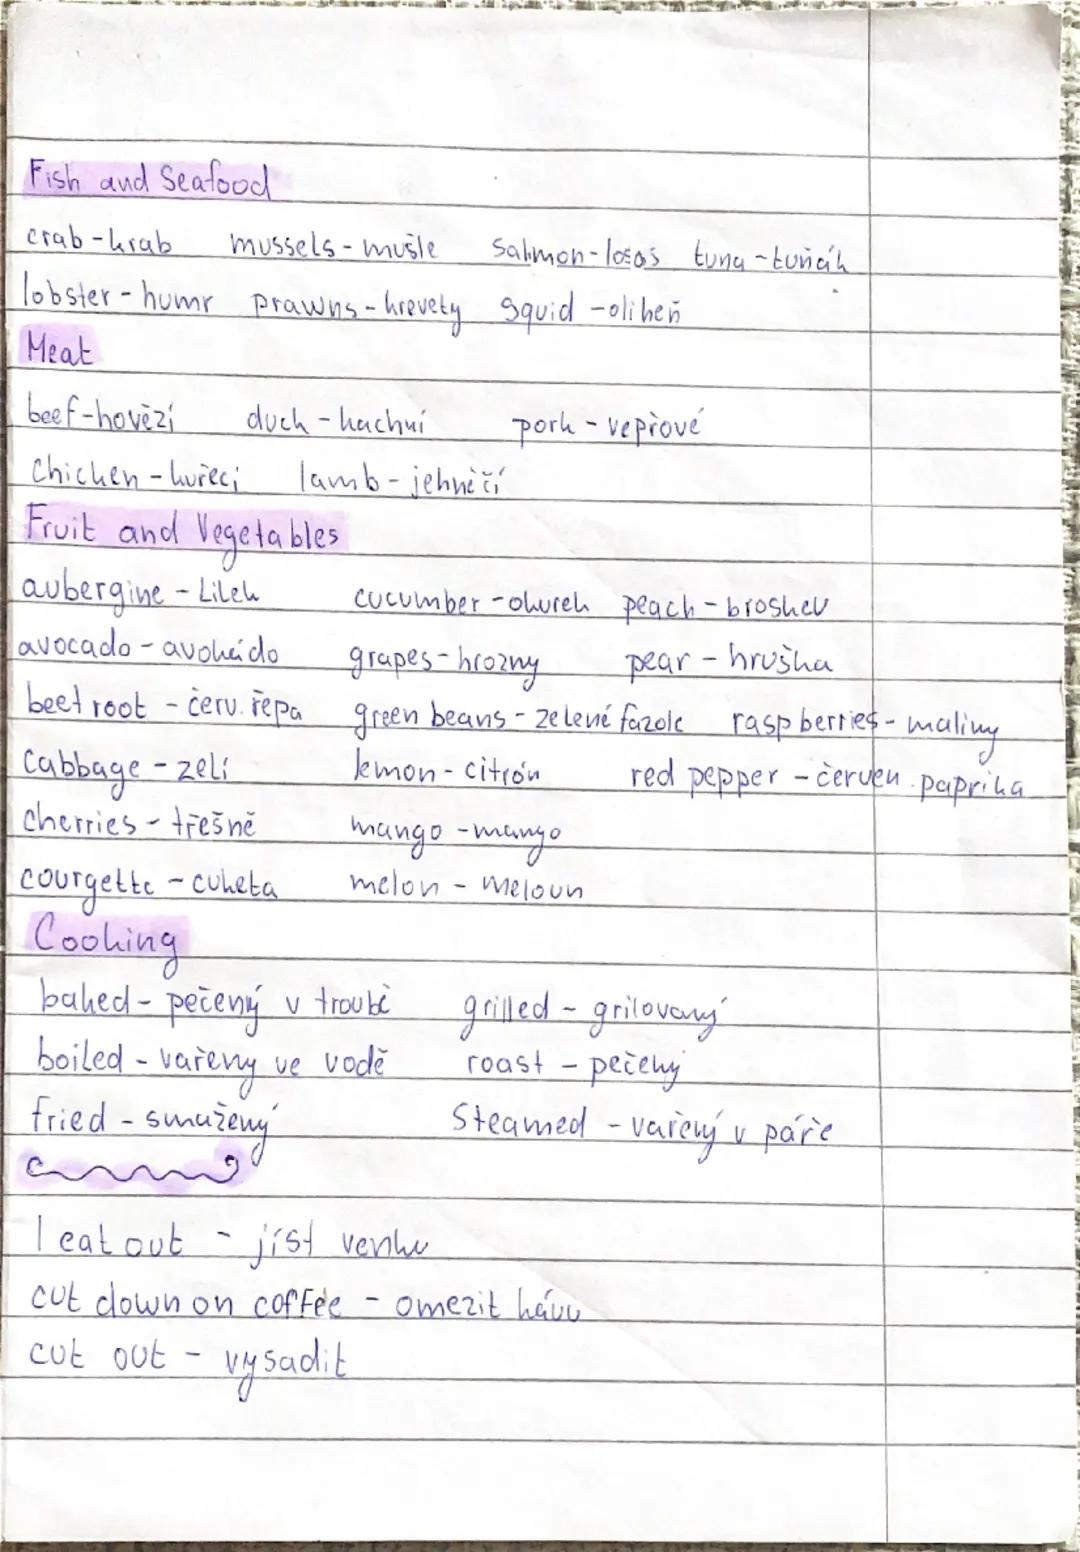 Fish and Seafood
crab - krab mussels - mušle salmon - losos tuna - tuňák
lobster - humr prawns - krevety squid - oliheň
Meat
beef - hovězí duck - kachní pork - vepřové
chicken - kuřecí lamb - jehněčí
Fruit and Vegetables
aubergine - Lilek cucumber - okurek peach - broskev
avocado - avokádo grapes - hrozny pear - hruška
beetroot - červ. řepa green beans - zelené fazole raspberries - maliny
cabbage - zelí lemon - citrón red pepper - červen. paprika
cherries - třešně mango - mango
courgette - cuketa melon - meloun
Cooking
baked - pečený v troubě grilled - grilovaný
boiled - vařený ve vodě roast - pečený
fried - smažený Steamed - vařený v páře
I eat out - jíst venku
cut down on coffee - omezit kávu
cut out - vysadit